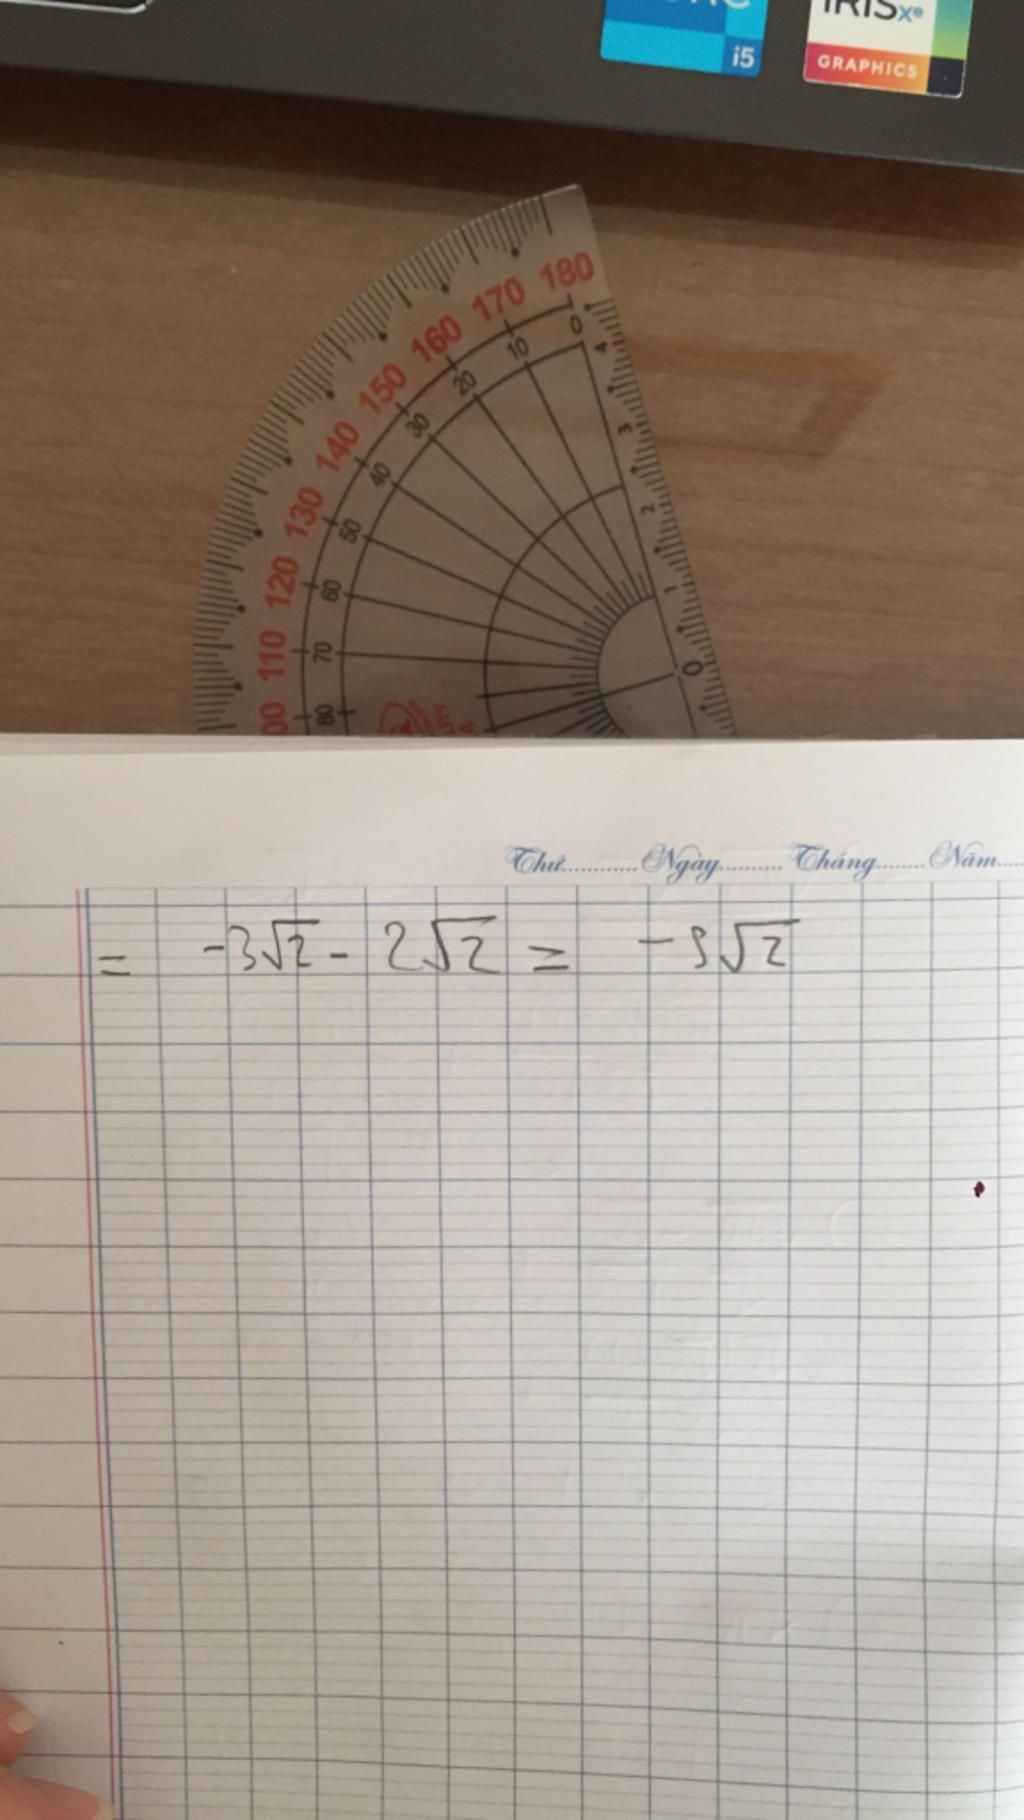 i5
GRAPHICS
180
170
160
150
140
130
120
110
00
0
10
20
30
40
50
60
70
80
4
3
2
1
0
Thứ............Ngày...........Tháng........Năm.....
= -3√2 - 2√2 = -5√2